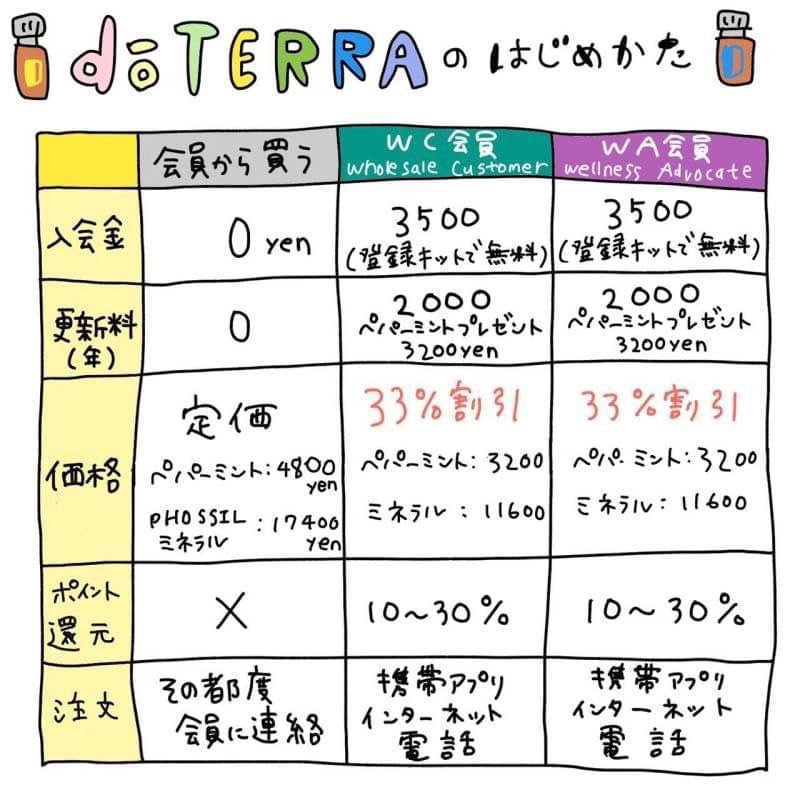 dōTERRAのはじめかた
会員から買う
WC会員
Wholesale Customer
WA会員
Wellness Advocate
入会金
0 yen
3500
(登録キットで無料)
3500
(登録キットで無料)
更新料
(年)
0
2000
ペパーミントプレゼント
3200yen
2000
ペパーミントプレゼント
3200yen
価格
定価
ペパーミント:4800
yen
PHOSSIL
ミネラル :17400
yen
33%割引
ペパーミント:3200
ミネラル:11600
33%割引
ペパーミント:3200
ミネラル:11600
ポイント
還元
×
10〜30%
10〜30%
注文
その都度
会員に連絡
携帯アプリ
インターネット
電話
携帯アプリ
インターネット
電話